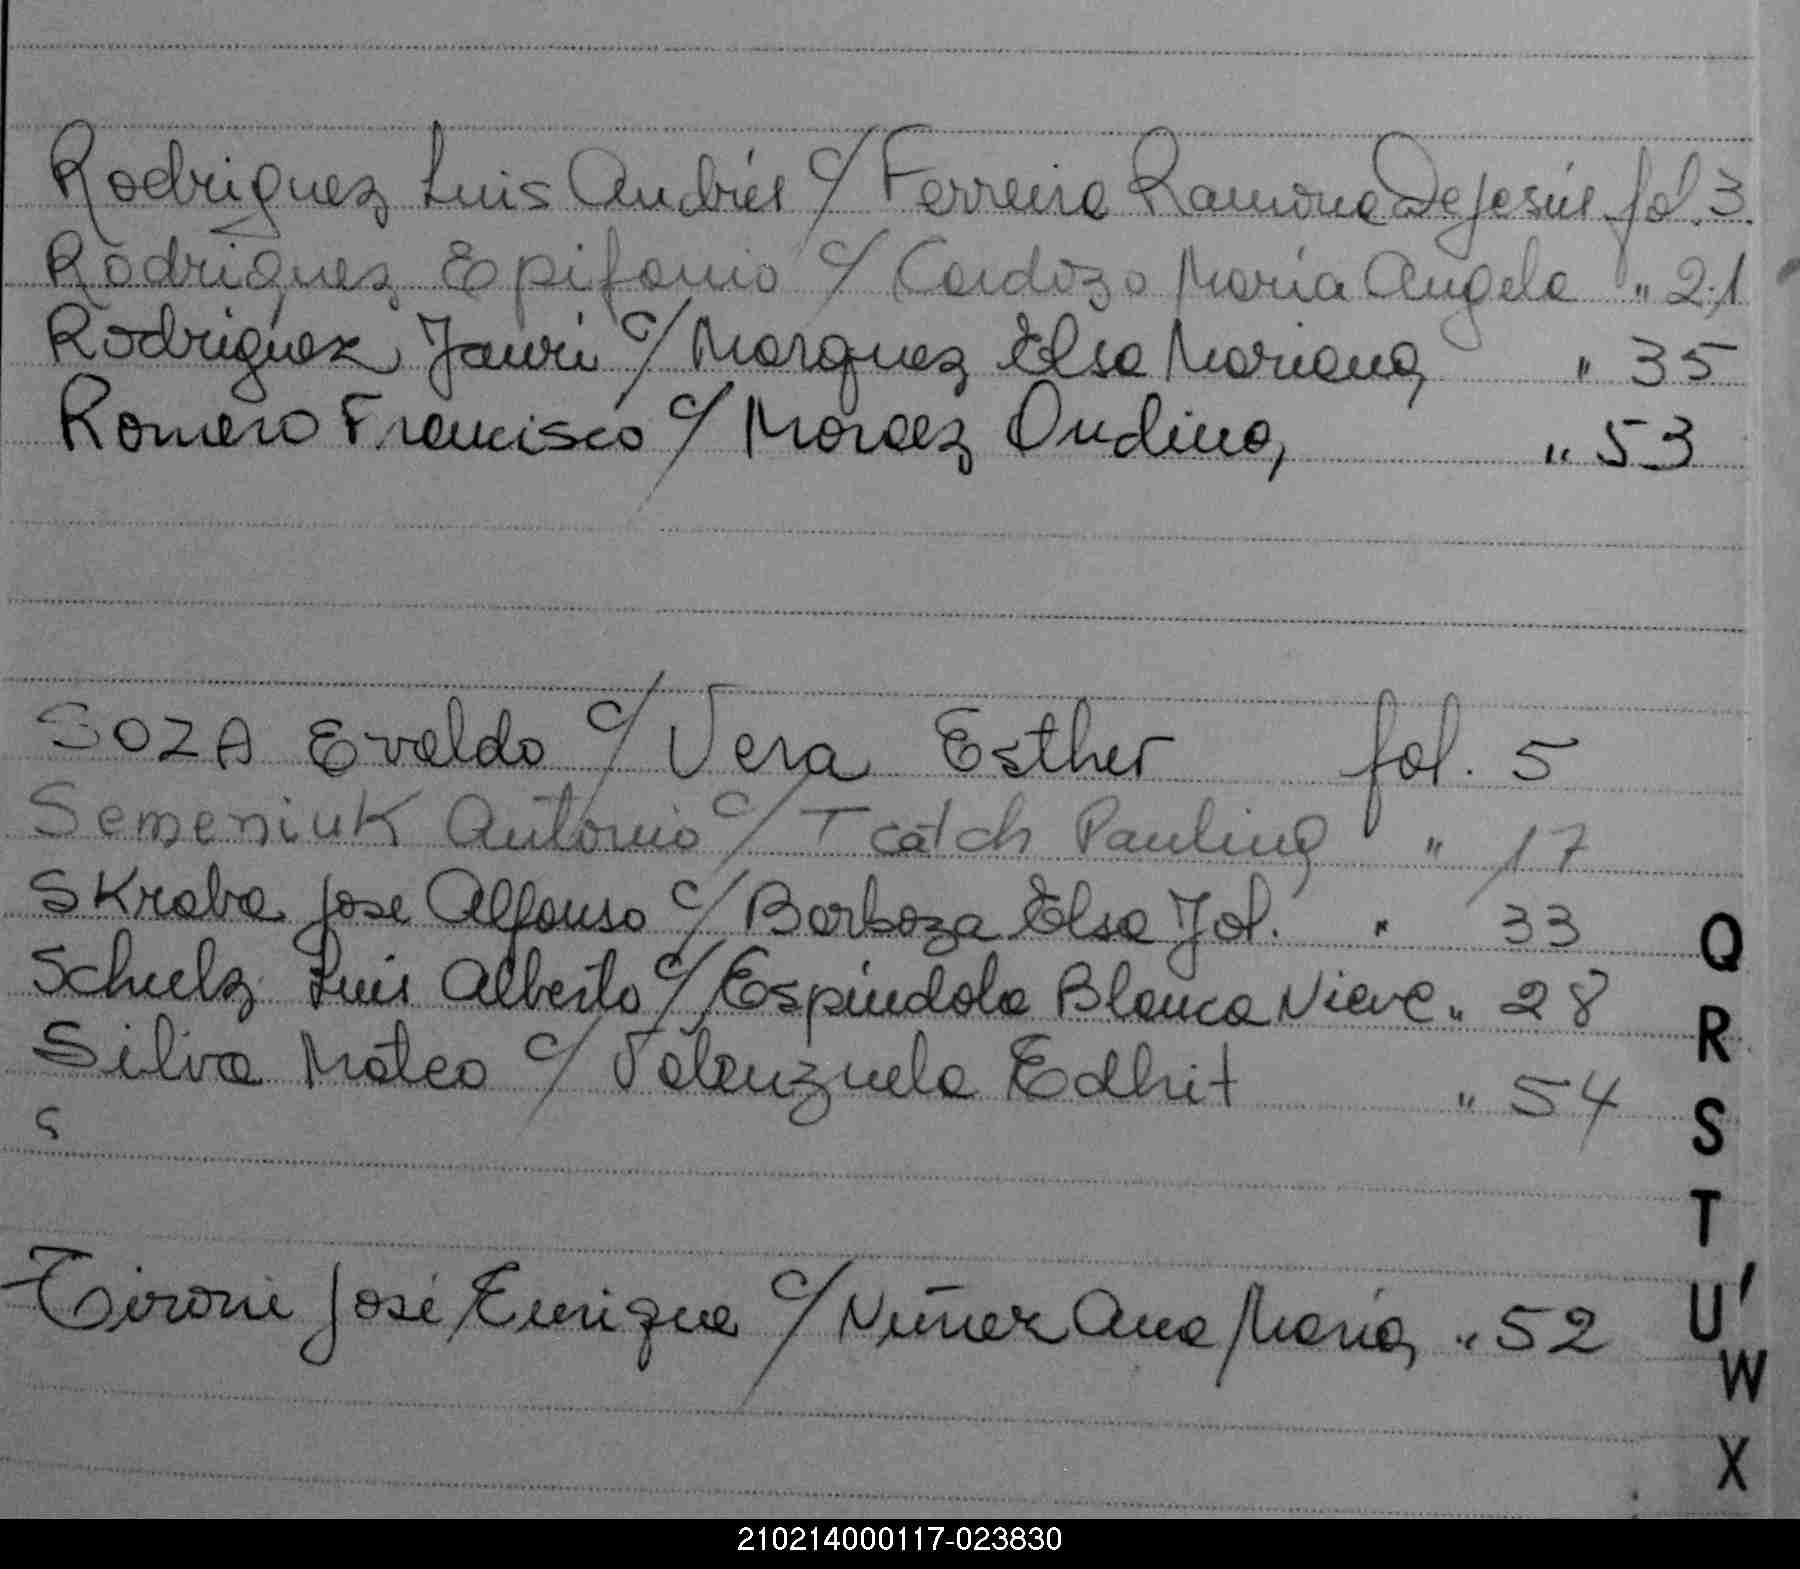 Rodriguez Luis Andrés c/ Ferreira Ramona DeJesús fol. 3
Rodriguez Epifanio c/ Cardozo María Angela " 21
Rodriguez Jauri c/ Marquez Elsa Mariana, " 35
Romero Francisco c/ Moraez Ondina, " 53
SOZA Evaldo c/ Vera Esther fol. 5
Semeniuk Antonio c/ Tcatch Paulina " 17
SKraba Jose Alfonso c/ Barboza Elsa Yol. " 33
Schulz Luis Alberto c/ Espíndola Blanca Nieve " 28
Silva Mateo c/ Valenzuela Edhit " 54
S
Tironi José Enrique c/ Nuñez Ana María, " 52
Q
R
S
T
U
W
X
210214000117-023830